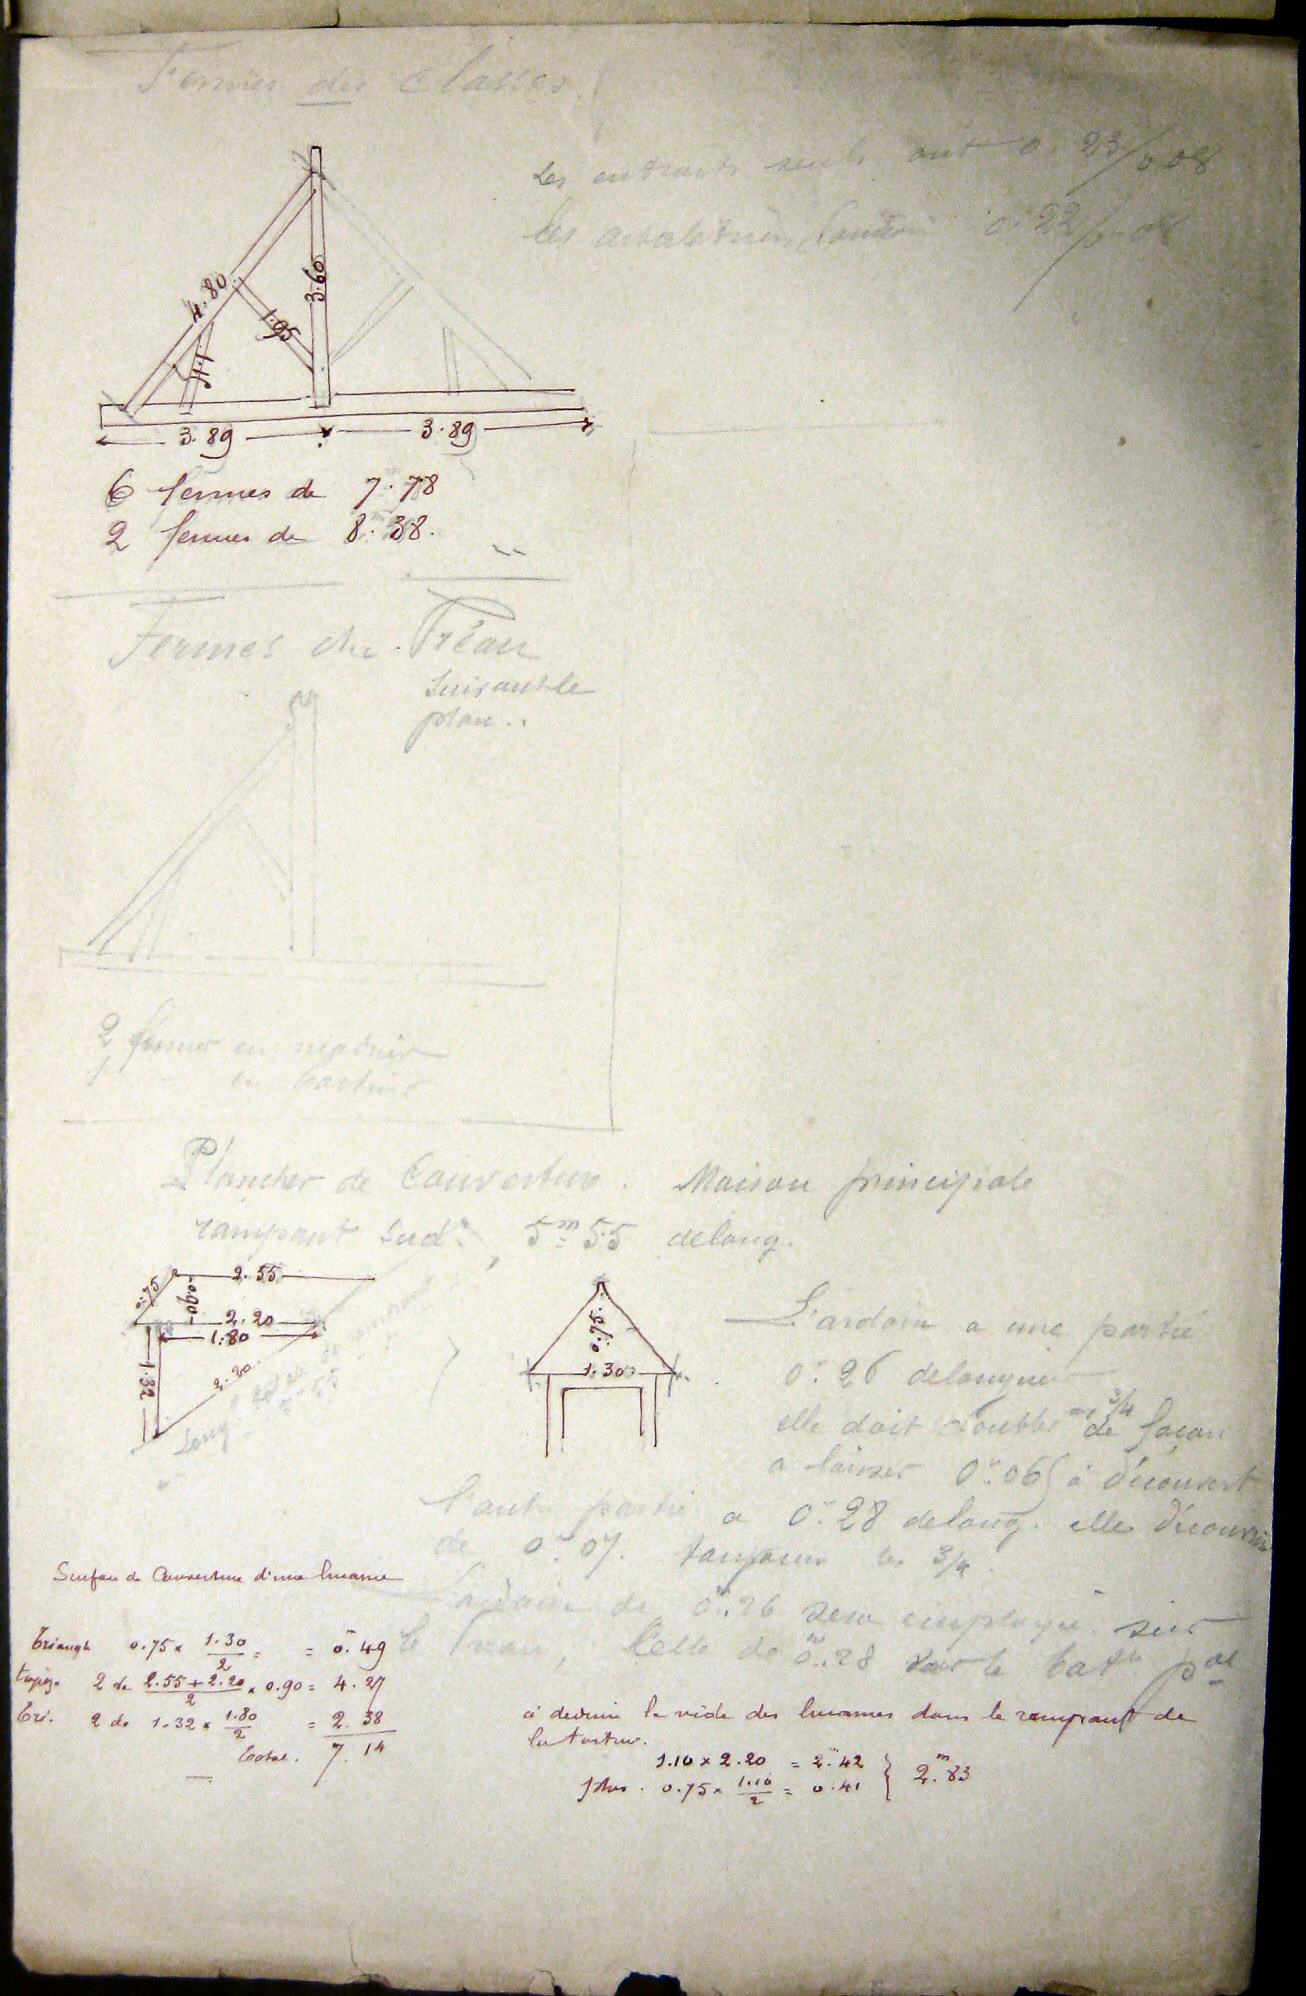 Fermes des Classes
Les entraits seuls ont 0.23/0.08
les arbalétriers 0.22/0.08
4.80
3.60
1.95
1.15
3.89
3.89
6 fermes de 7.78
2 fermes de 8.38.
Fermes du Préau
suivant le
plan..
2 fermes en madrier
1 - en bastins
Plancher de Couverture. Maison principale
rampant Sud, 5m55 de long.
2.55
0.75
0.90
2.20
1.80
1.32
2.20
0.75
1.30
L'ardoise a une partie
0m26 de longueur
elle doit doubler aux 3/4 de façon
a laisser 0m065 à découvert
l'autre partie a 0m28 de long. elle découvrira
de 0m07. toujours les 3/4.
L'ardoise de 0m26 sera employée sur
le Préau, Celle de 0m28 sur le bat. pal
Surface de Couverture d'une lucarne
Triangle 0.75 x 1.30/2 = = 0m49
trapèze 2 de 2.55+2.20/2 x 0.90 = 4.27
Tri. 2 de 1.32 x 1.80/2 = 2.38
Total. 7.14
à déduire le vide des lucarnes dans le rampant de
la toiture.
1.10 x 2.20 = 2m42
plus. 0.75 x 1.10/2 = 0.41 } 2m83